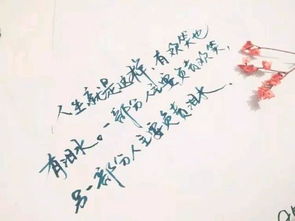 人生就是这样，有欢笑也
有泪水。一部分人主要负责欢笑，
另一部分人主要负责泪水。